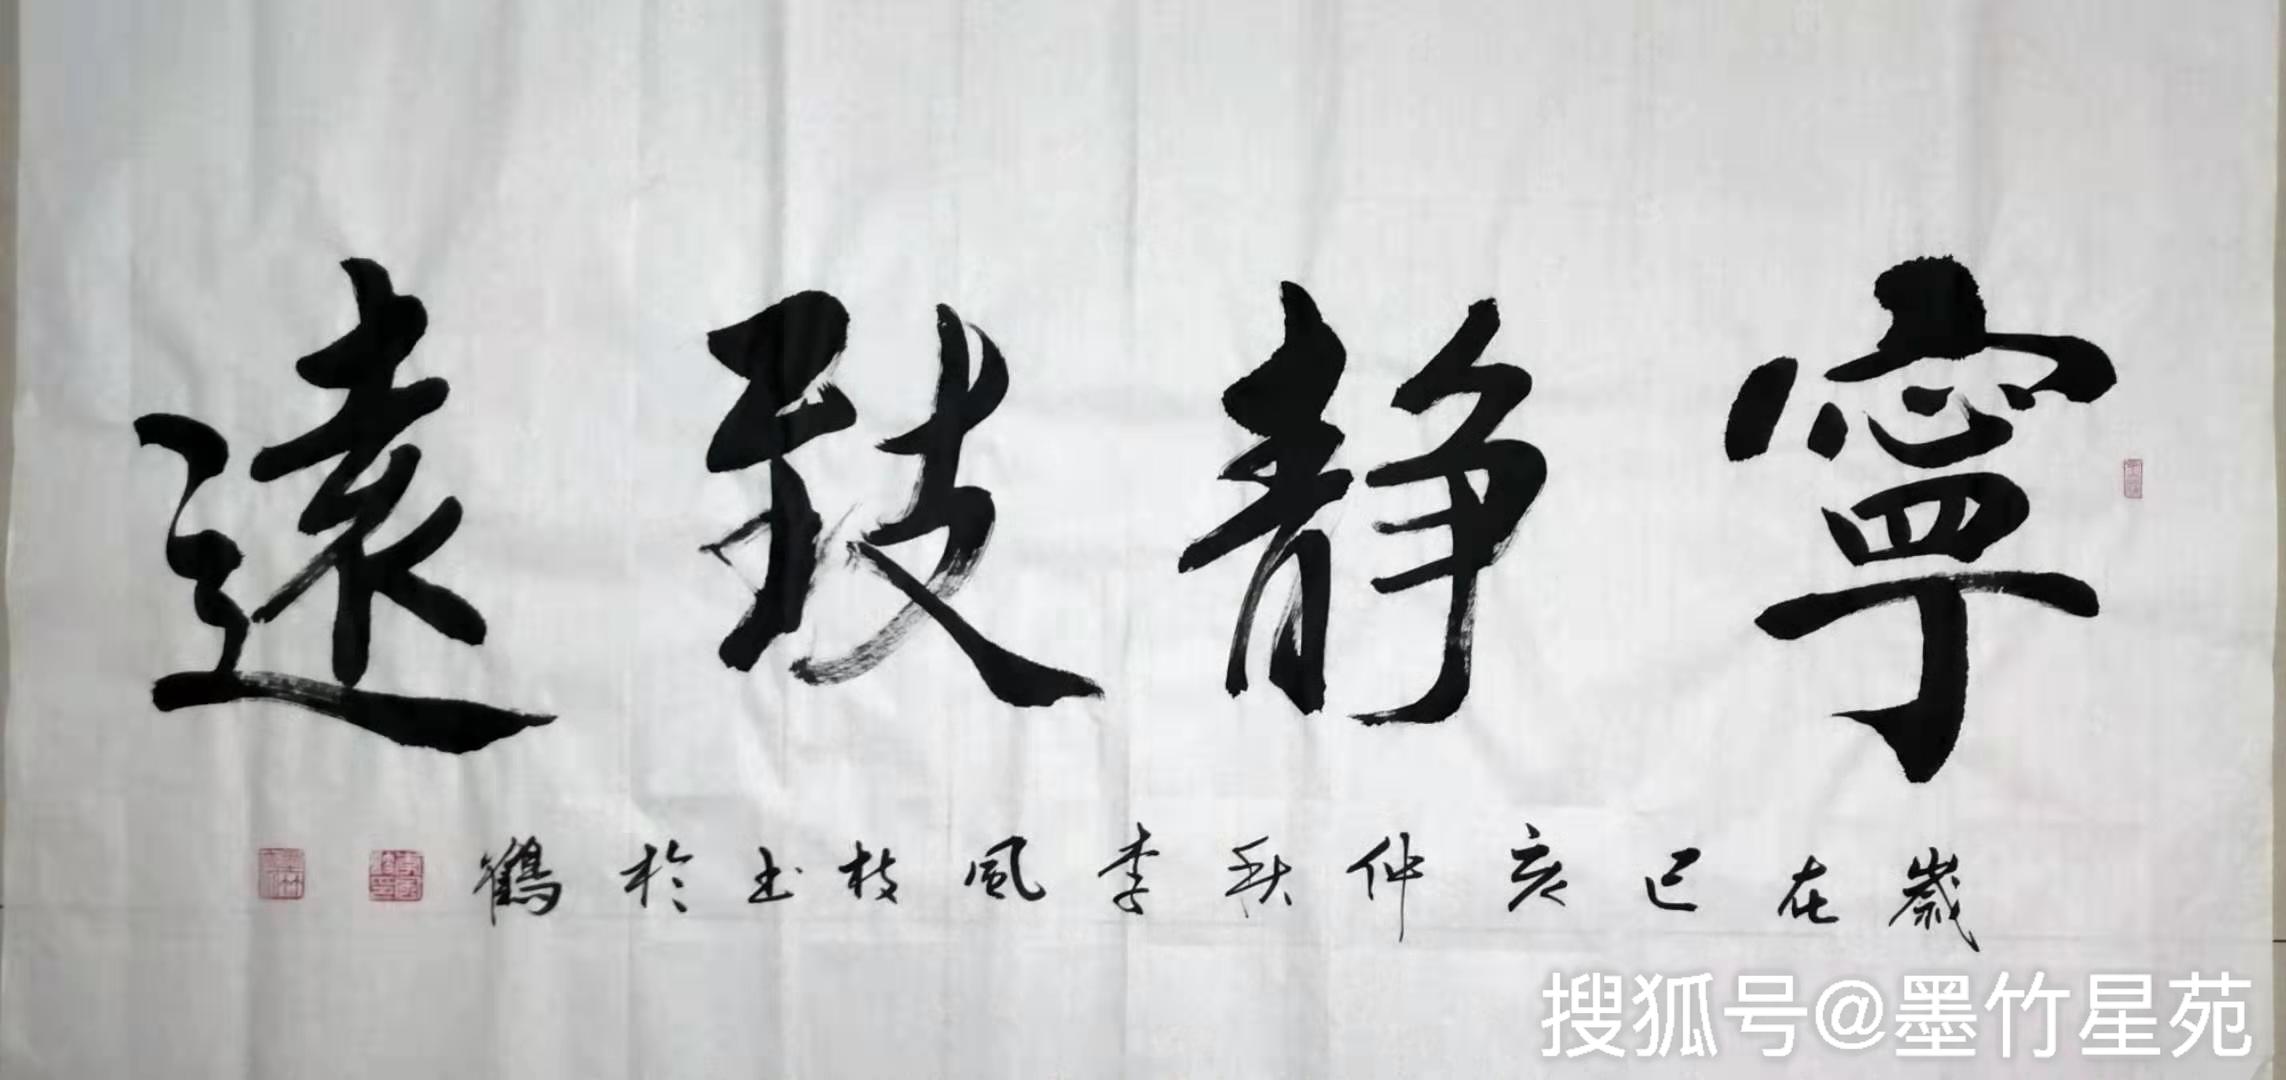 寧静致遠
歲在己亥仲秋李風枝书於鶴
搜狐号@墨竹星苑